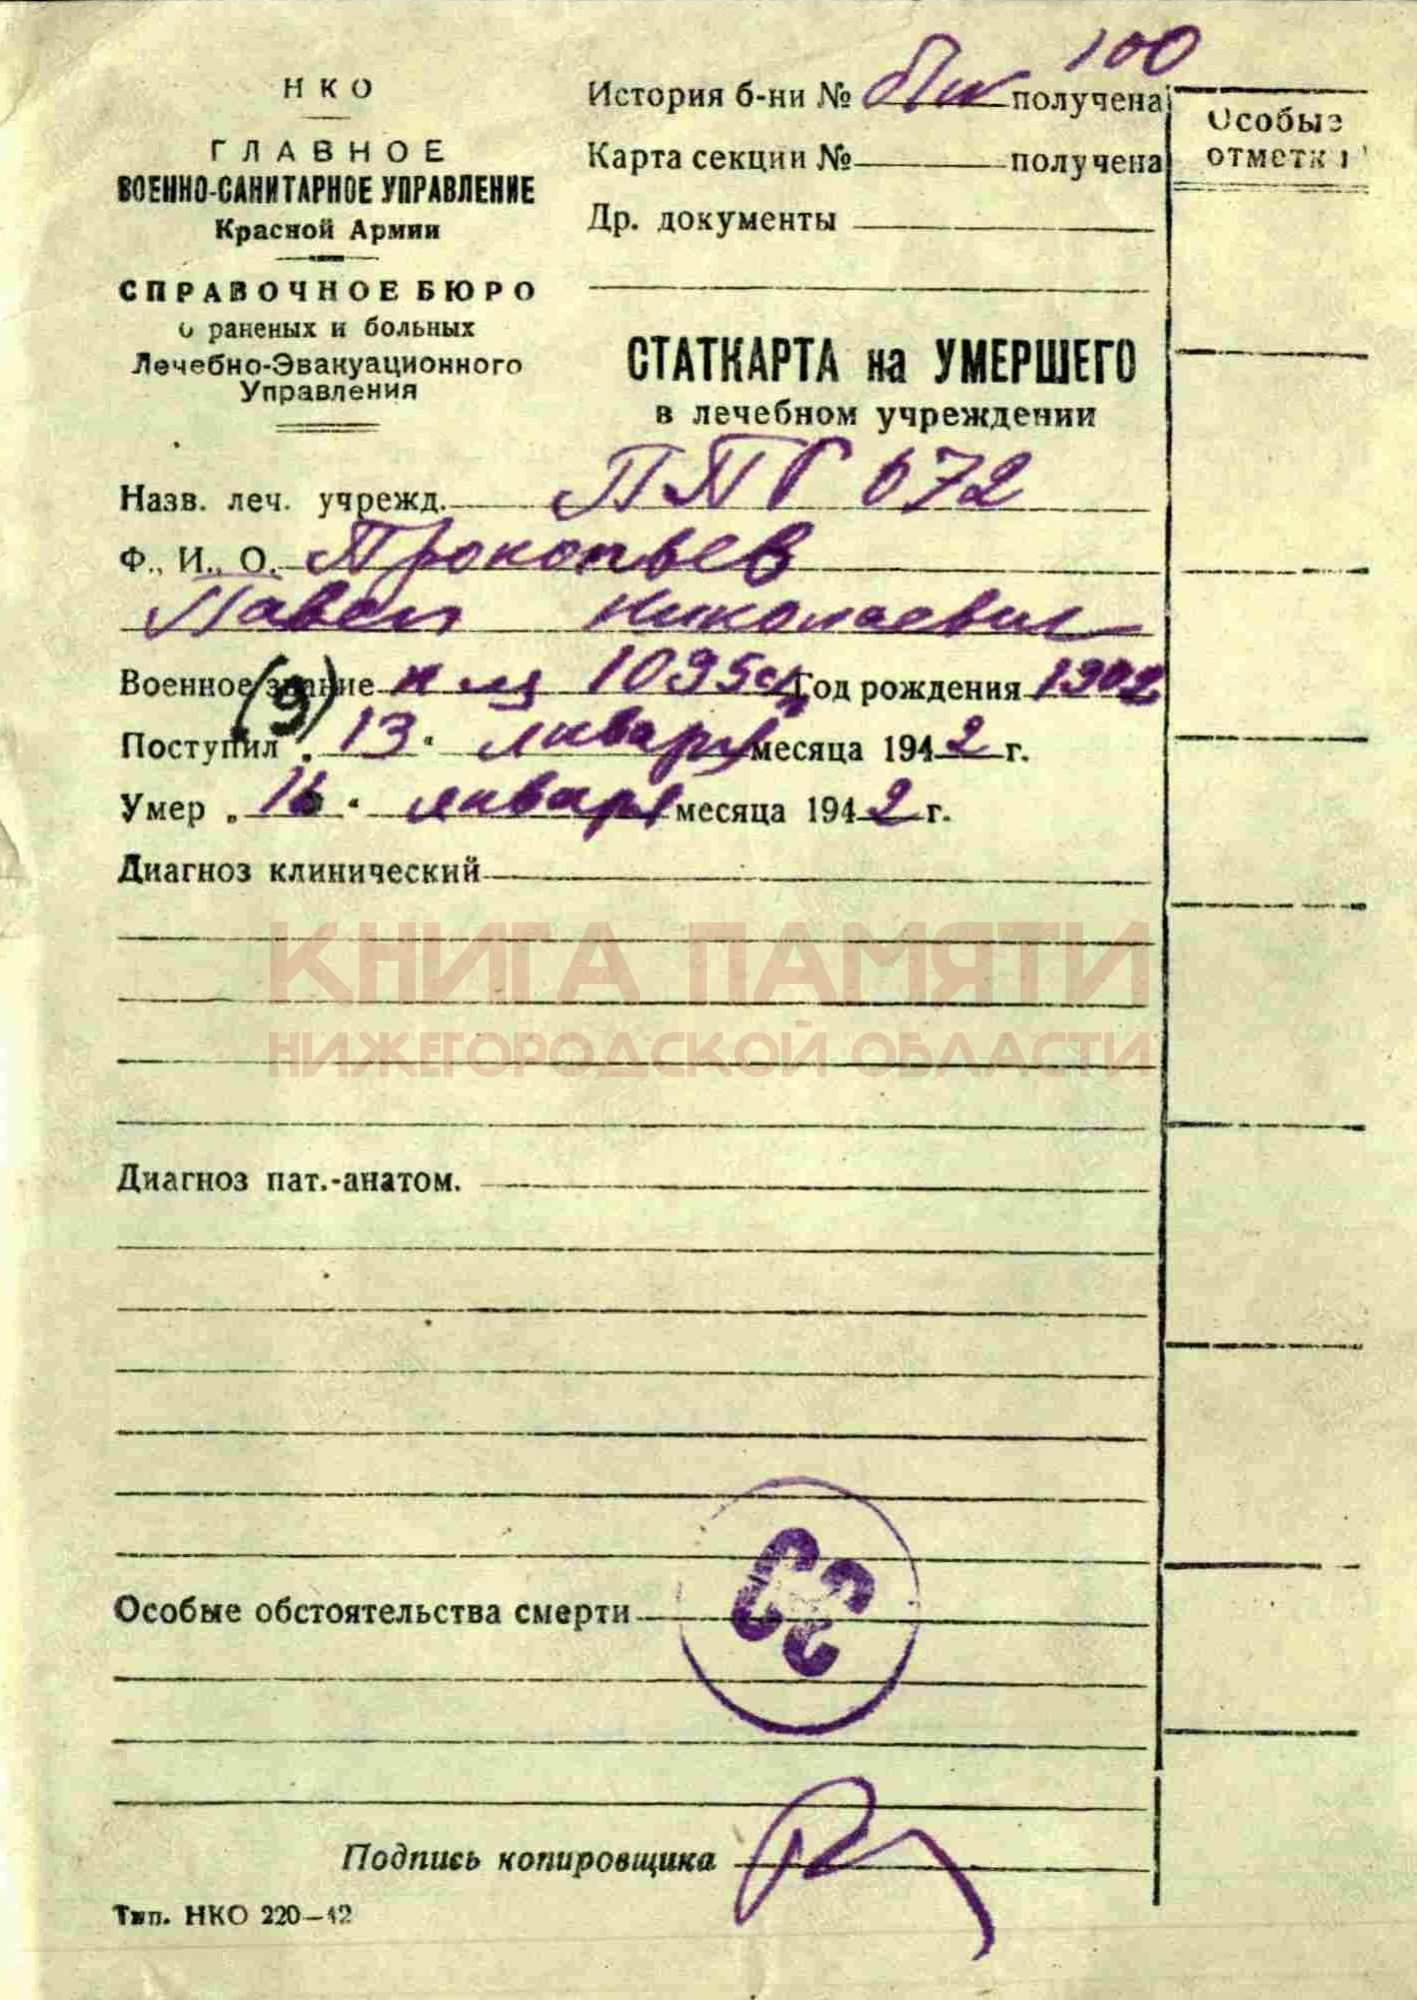 НКО
ГЛАВНОЕ
ВОЕННО-САНИТАРНОЕ УПРАВЛЕНИЕ
Красной Армии
СПРАВОЧНОЕ БЮРО
о раненых и больных
Лечебно-Эвакуационного
Управления
100
История б-ни № получена
Карта секции № получена
Др. документы
Особые
отметки
СТАТКАРТА на УМЕРШЕГО
в лечебном учреждении
Назв. леч. учрежд. ППГ 672
Ф., И., О. Прокопьев
Павел Николаевич
Военное звание 1095 Год рождения 1902
(9)
Поступил „ 13 " января месяца 1942 г.
Умер „ 16 " января месяца 1942 г.
Диагноз клинический
КНИГА ПАМЯТИ
НИЖЕГОРОДСКОЙ ОБЛАСТИ
Диагноз пат.-анатом.
Особые обстоятельства смерти
Подпись копировщика
Тип. НКО 220—42